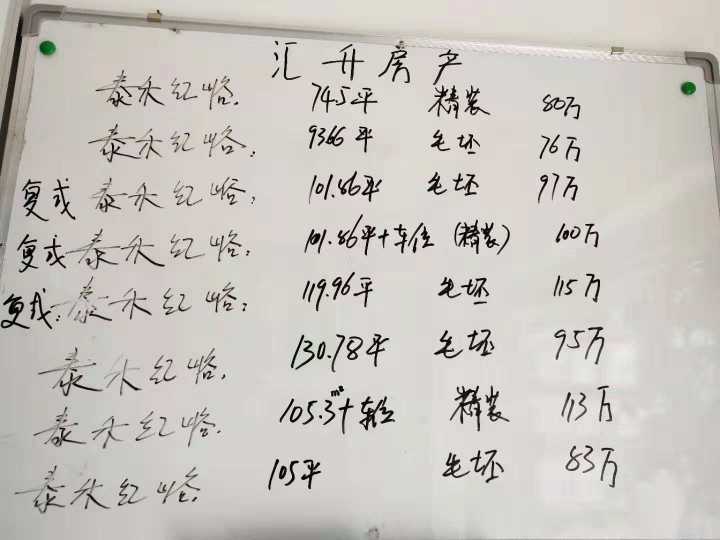 汇升房产
泰禾红峪. 74.5平 精装 80万
泰禾红峪: 93.66平 毛坯 76万
复式 泰禾红峪: 101.86平 毛坯 97万
复式 泰禾红峪: 101.86平+车位 (精装) 100万
复式: 泰禾红峪: 119.96平 毛坯 115万
泰禾红峪. 130.78平 毛坯 95万
泰禾红峪. 105.3m²+车位 精装 113万
泰禾红峪. 105平 毛坯 83万